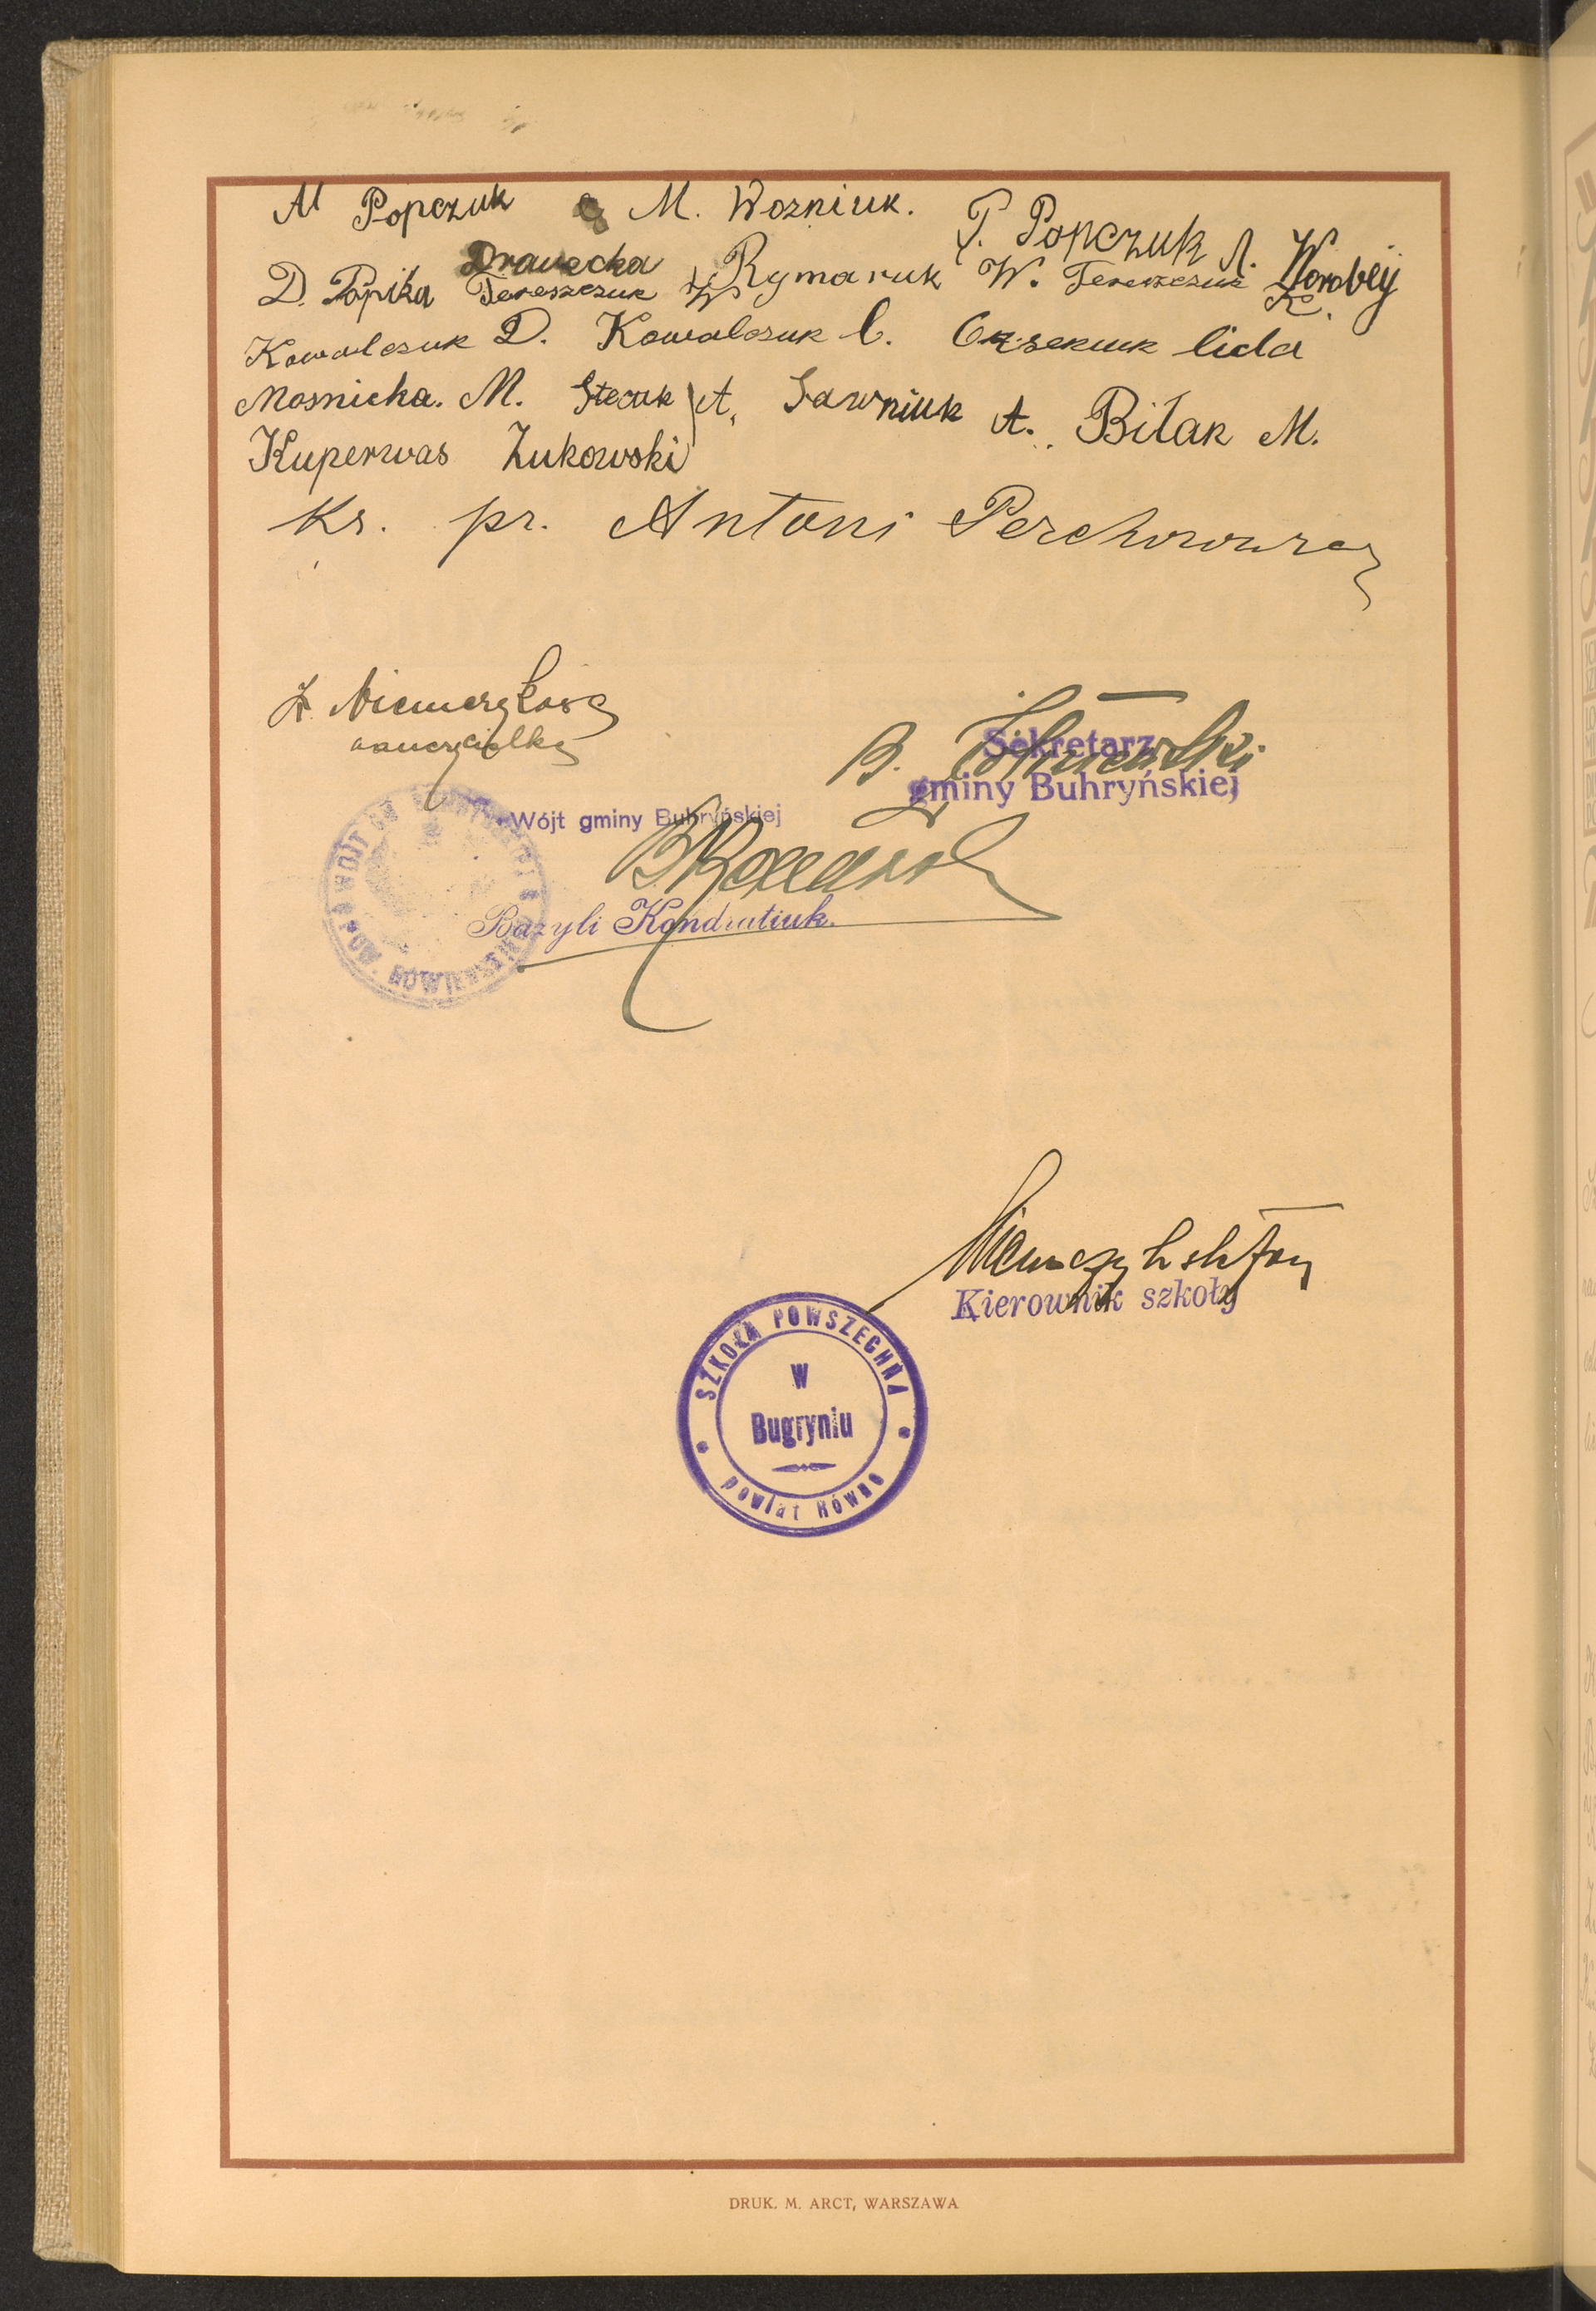 M Popczuk M. Wozniuk. P. Popczuk A. Worobej
D. Popika Drawecka Tereszczuk W. Rymaruk W. Tereszczuk K.
Kowalczuk D. Kowalczuk lida
Mosnicka. M. Stecuk A. Sawniuk A. Bilak M.
Kuperwas Żukowski
Ks. pr. Antoni
nauczycielka
B.
Sekretarz
gminy Buhryńskiej
Wójt gminy Buhryńskiej
Bazyli Kondratiuk.
Kierownik szkoły
SZKOŁA POWSZECHNA
W
Bugryniu
powiat Równe
DRUK. M. ARCT, WARSZAWA